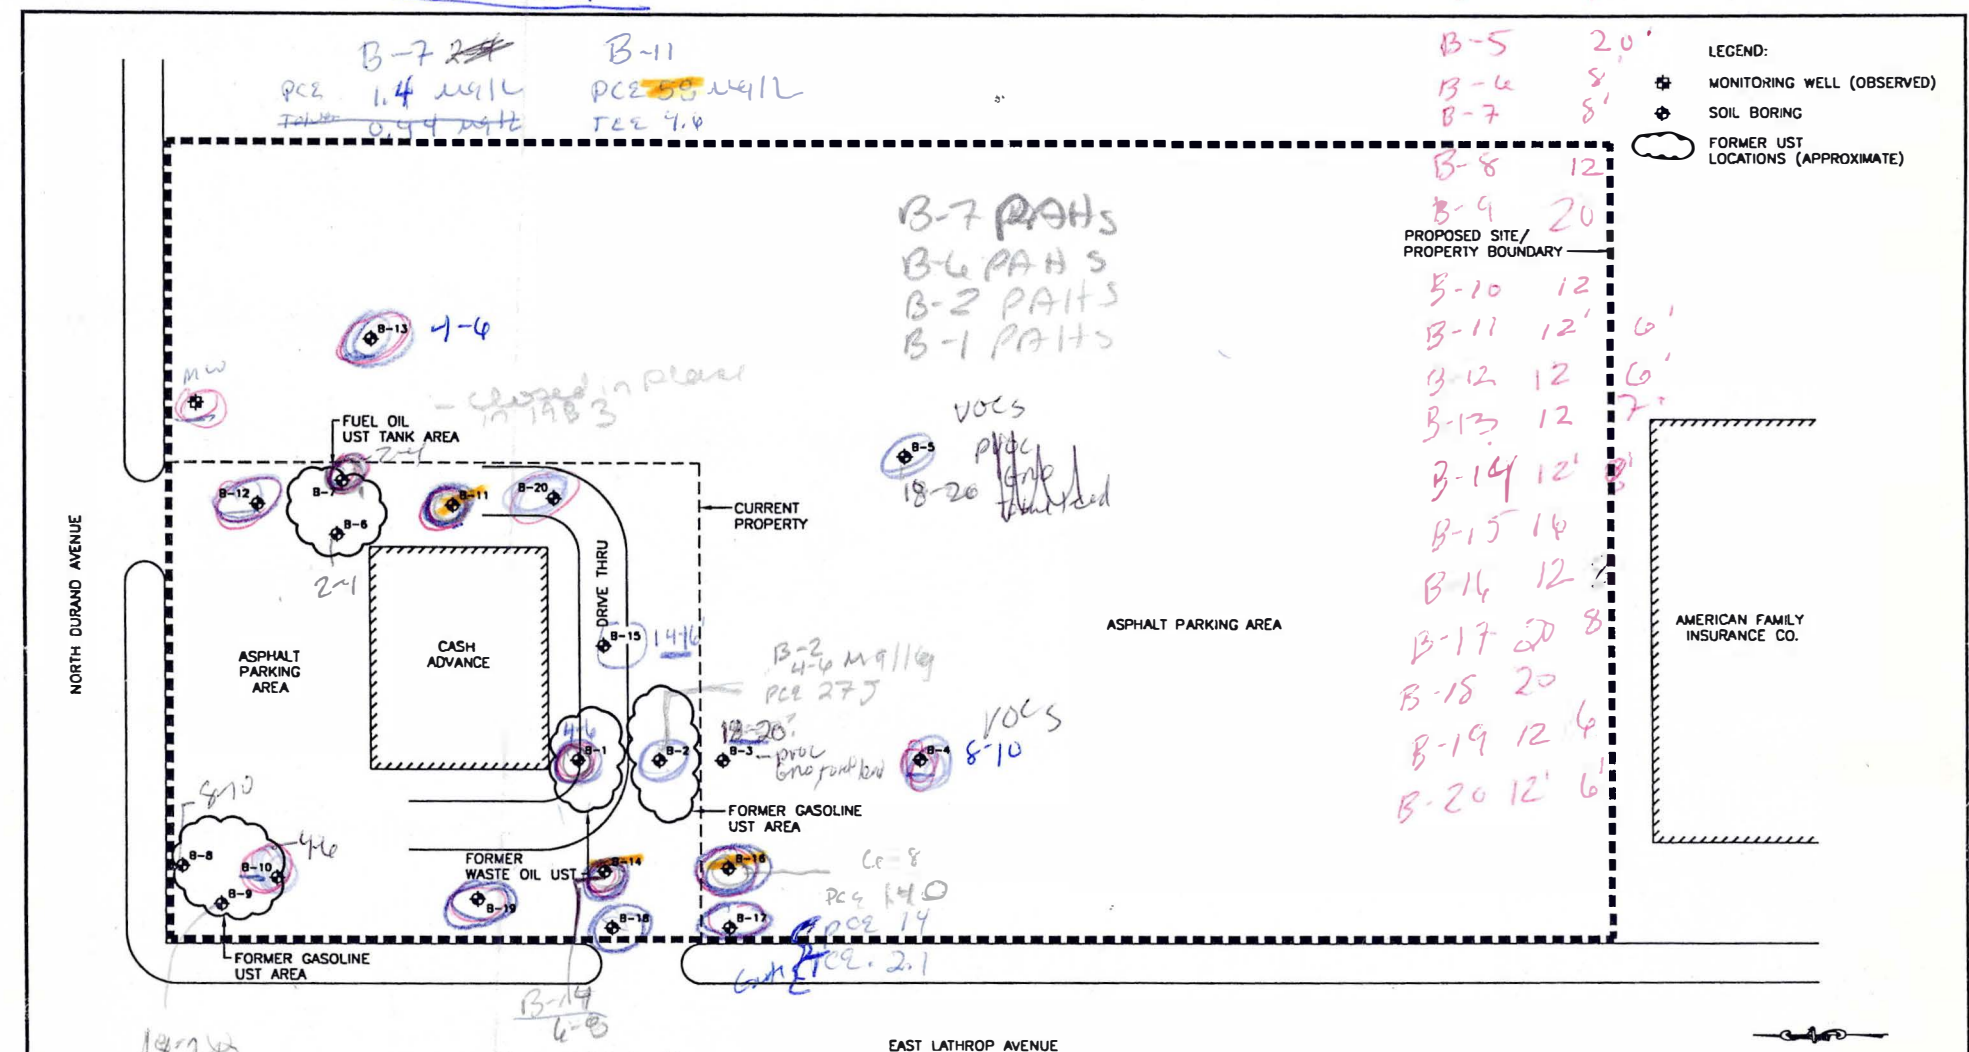 B-7
PCE 1.4 ug/L
0.44 ug/L
B-11
PCE 58 ug/L
TCE 9.6
B-5 20'
B-6 8'
B-7 8'
B-8 12
B-9 20
B-10 12
B-11 12' 6'
B-12 12 6'
B-13 12 7'
B-14 12' 8'
B-15 16
B-16 12
B-17 20 8
B-18 20
B-19 12 6
B-20 12' 6'
LEGEND:
MONITORING WELL (OBSERVED)
SOIL BORING
FORMER UST
LOCATIONS (APPROXIMATE)
PROPOSED SITE/
PROPERTY BOUNDARY
B-7 PAHs
B-6 PAHS
B-2 PAHS
B-1 PAHS
B-13 4-6
MW
- closed in place
in 1983
FUEL OIL
UST TANK AREA
2-4
B-12
B-7
B-6
B-11
B-20
2-4
CURRENT
PROPERTY
VOCS
B-5
PVOC
GRO
18-20
NORTH DURAND AVENUE
ASPHALT
PARKING
AREA
CASH
ADVANCE
DRIVE THRU
B-15 14-16'
ASPHALT PARKING AREA
AMERICAN FAMILY
INSURANCE CO.
B-2
4-6 ug/kg
PCE 27J
4-6
B-1
B-2
18-20'
B-3
PVOC
VOCS
B-4 8-10
FORMER GASOLINE
UST AREA
8-10
B-8
B-10
4-6
B-9
FORMER
WASTE OIL UST
B-14
B-16
PCE 140
B-19
B-18
B-17
PCE 14
TCE 2.1
FORMER GASOLINE
UST AREA
B-14
6-8
EAST LATHROP AVENUE